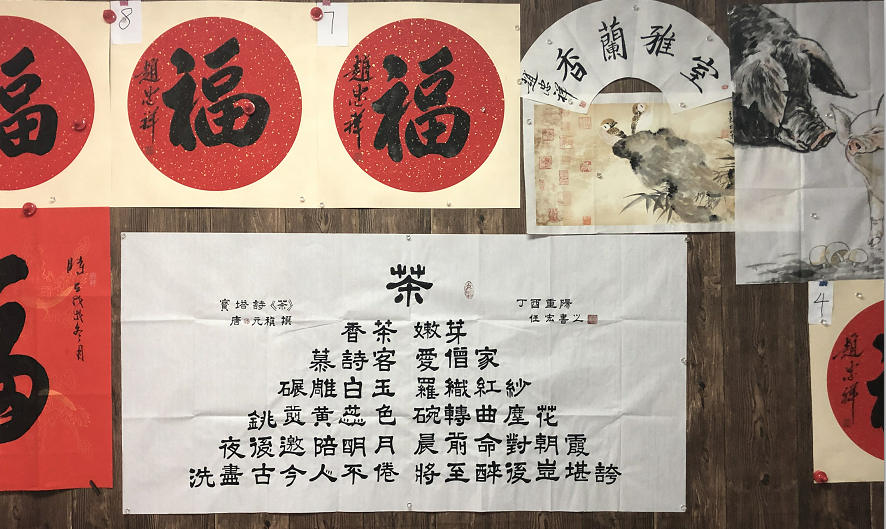 8
7
福
趙忠祥
福
趙忠祥
福
香蘭雅室
趙忠祥
4
趙忠祥
茶
寶塔詩《茶》
唐元稹撰
丁酉重陽
任宏書之
香茶 嫩芽
慕詩客 愛僧家
碾雕白玉 羅織紅紗
銚煎黃蕊色 碗轉曲塵花
夜後邀陪明月 晨前命對朝霞
洗盡古今人不倦 將至醉後豈堪誇